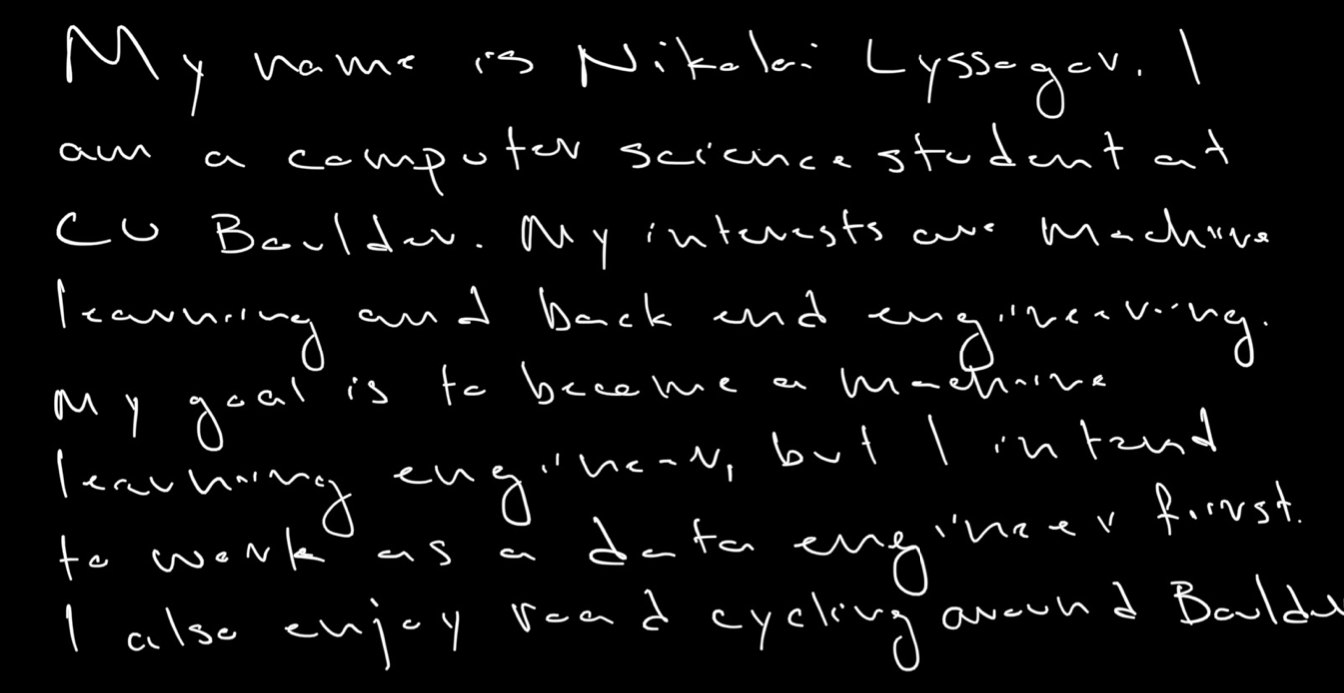 My name is Nikolai Lyssogor. I
am a computer science student at
CU Boulder. My interests are machine
learning and back end engineering.
My goal is to become a machine
learning engineer, but I intend
to work as a data engineer first.
I also enjoy road cycling around Boulder